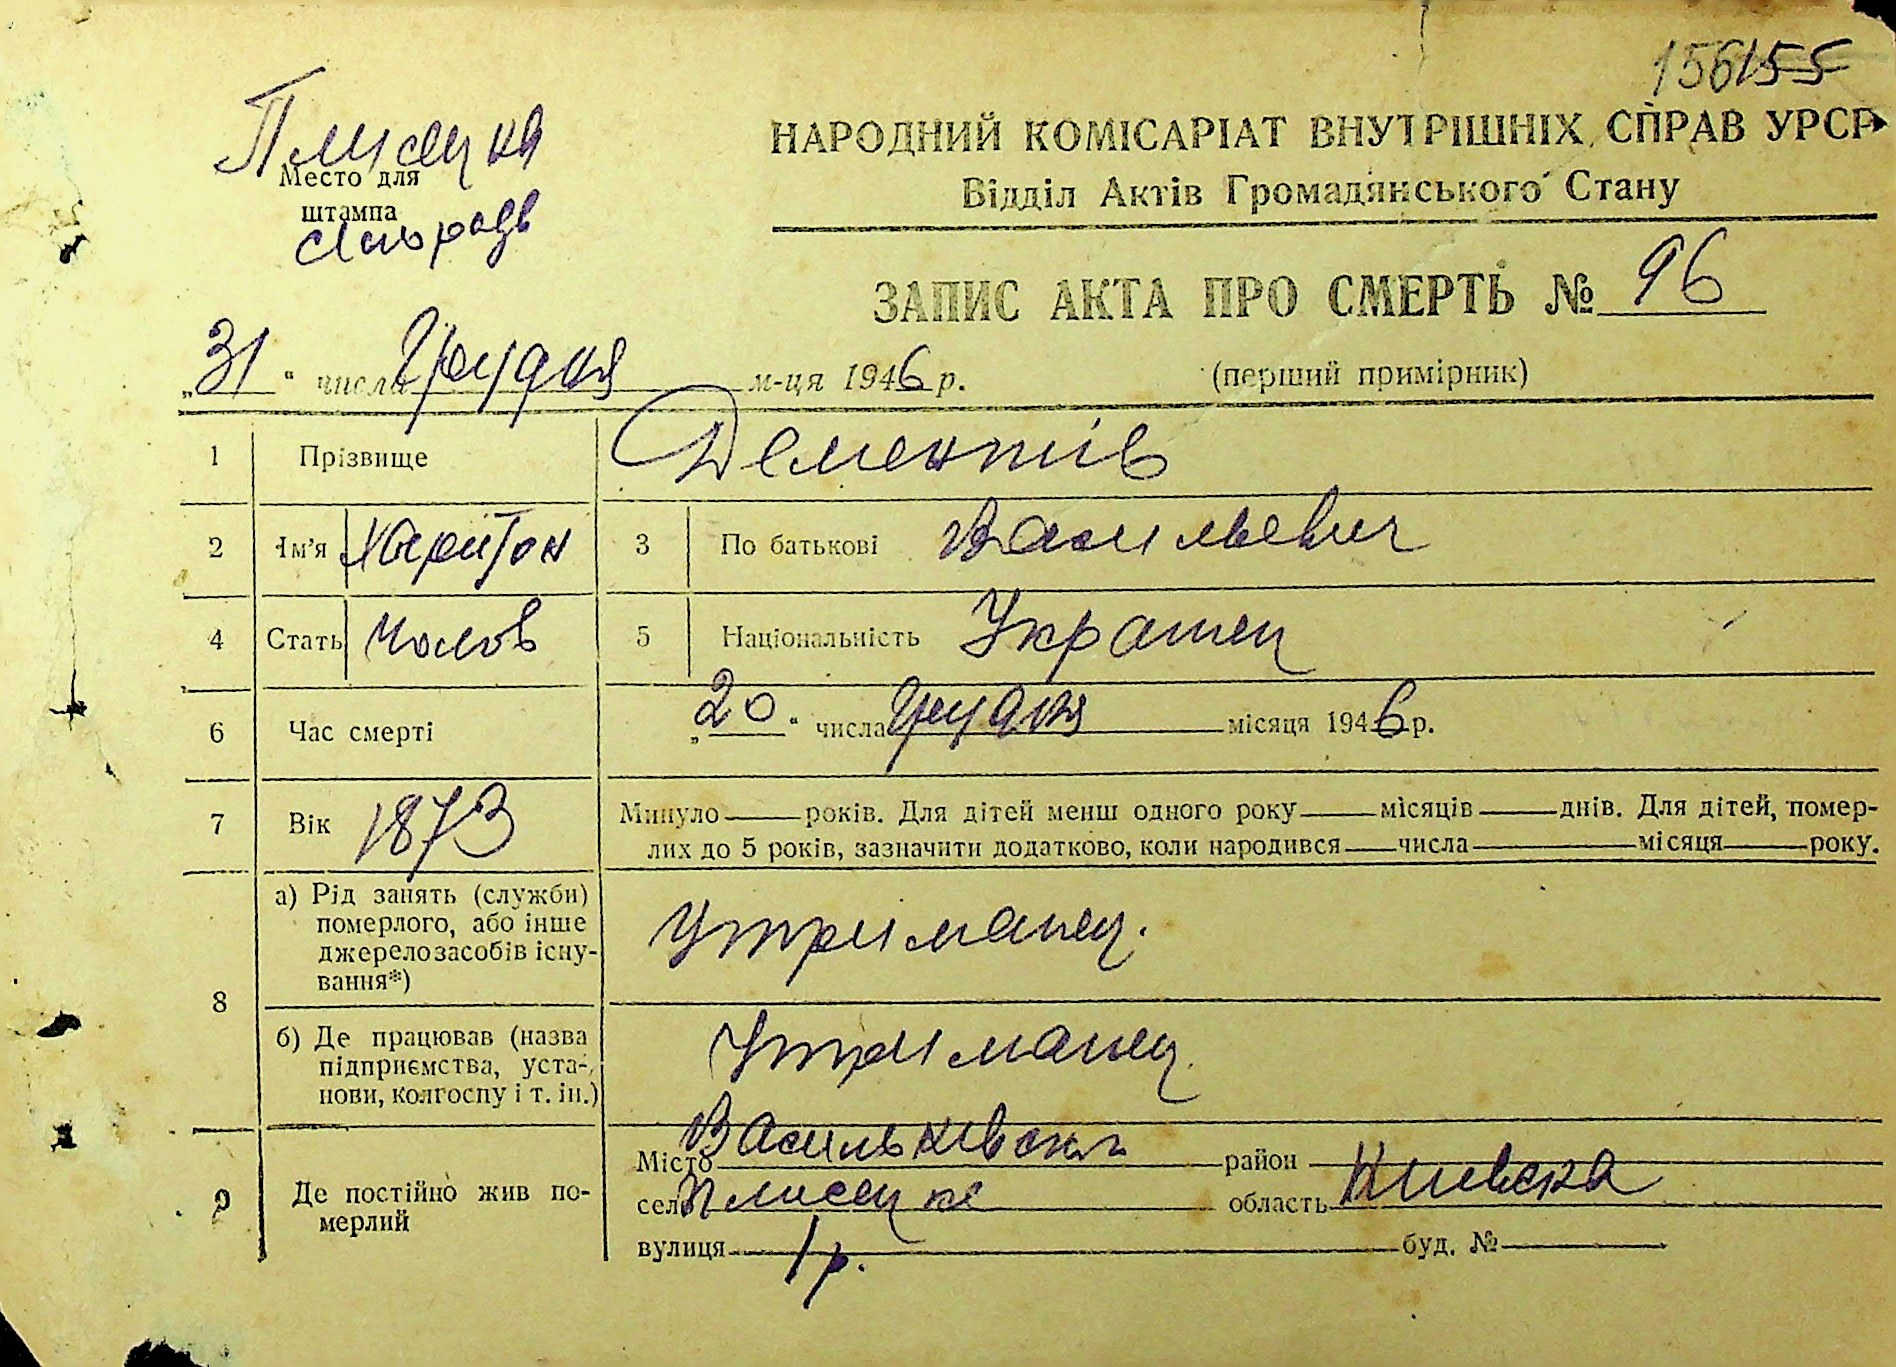 156 155
Плисецка
Место для
штампа
сільрада
НАРОДНИЙ КОМІСАРІАТ ВНУТРІШНІХ СПРАВ УРСР
Відділ Актів Громадянського Стану
ЗАПИС АКТА ПРО СМЕРТЬ № 96
„31“ числа грудня м-ця 1946 р.
(перший примірник)
1 Прізвище Дементіїв
2 Ім'я Харитон 3 По батькові Васильевич
4 Стать чолов 5 Національність Украінец
6 Час смерті „20“ числа грудня місяця 1946 р.
7 Вік 1873 Минуло років. Для дітей менш одного року місяців днів. Для дітей, помер-
лих до 5 років, зазначити додатково, коли народився числа місяця року.
8 а) Рід занять (служби)
померлого, або інше
джерело засобів існу-
вання*)
Утриманец.
б) Де працював (назва
підприємства, уста-
нови, колгоспу і т. ін.)
Утриманец
9 Де постійно жив по-
мерлий
Місто Васильківски район
село Плисецке область Киевска
вулиця 1 р. буд. №